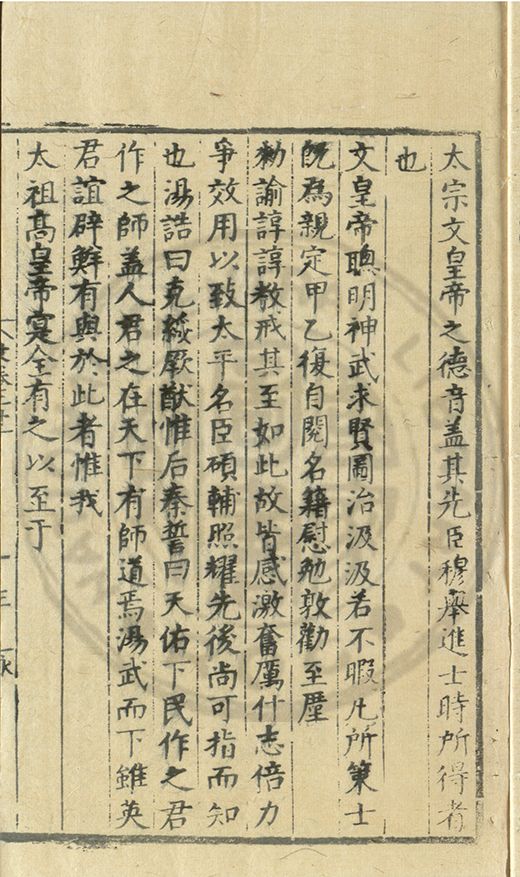 太宗文皇帝之德音盖其先臣穆舉進士時所得者
也
文皇帝聰明神武求賢圖治汲汲若不暇凡所策士
旣爲親定甲乙復自閱名籍慰勉敦勸至塵
勑諭諄諄教戒其至如此故皆感激奮厲什志倍力
爭效用以致太平名臣碩輔照耀先後尚可指而知
也湯誥曰克綏厥猷惟后秦誓曰天佑下民作之君
作之師盖人君之在天下有師道焉湯武而下雖英
君誼辟鮮有與於此者惟我
太祖高皇帝寔全有之以至于